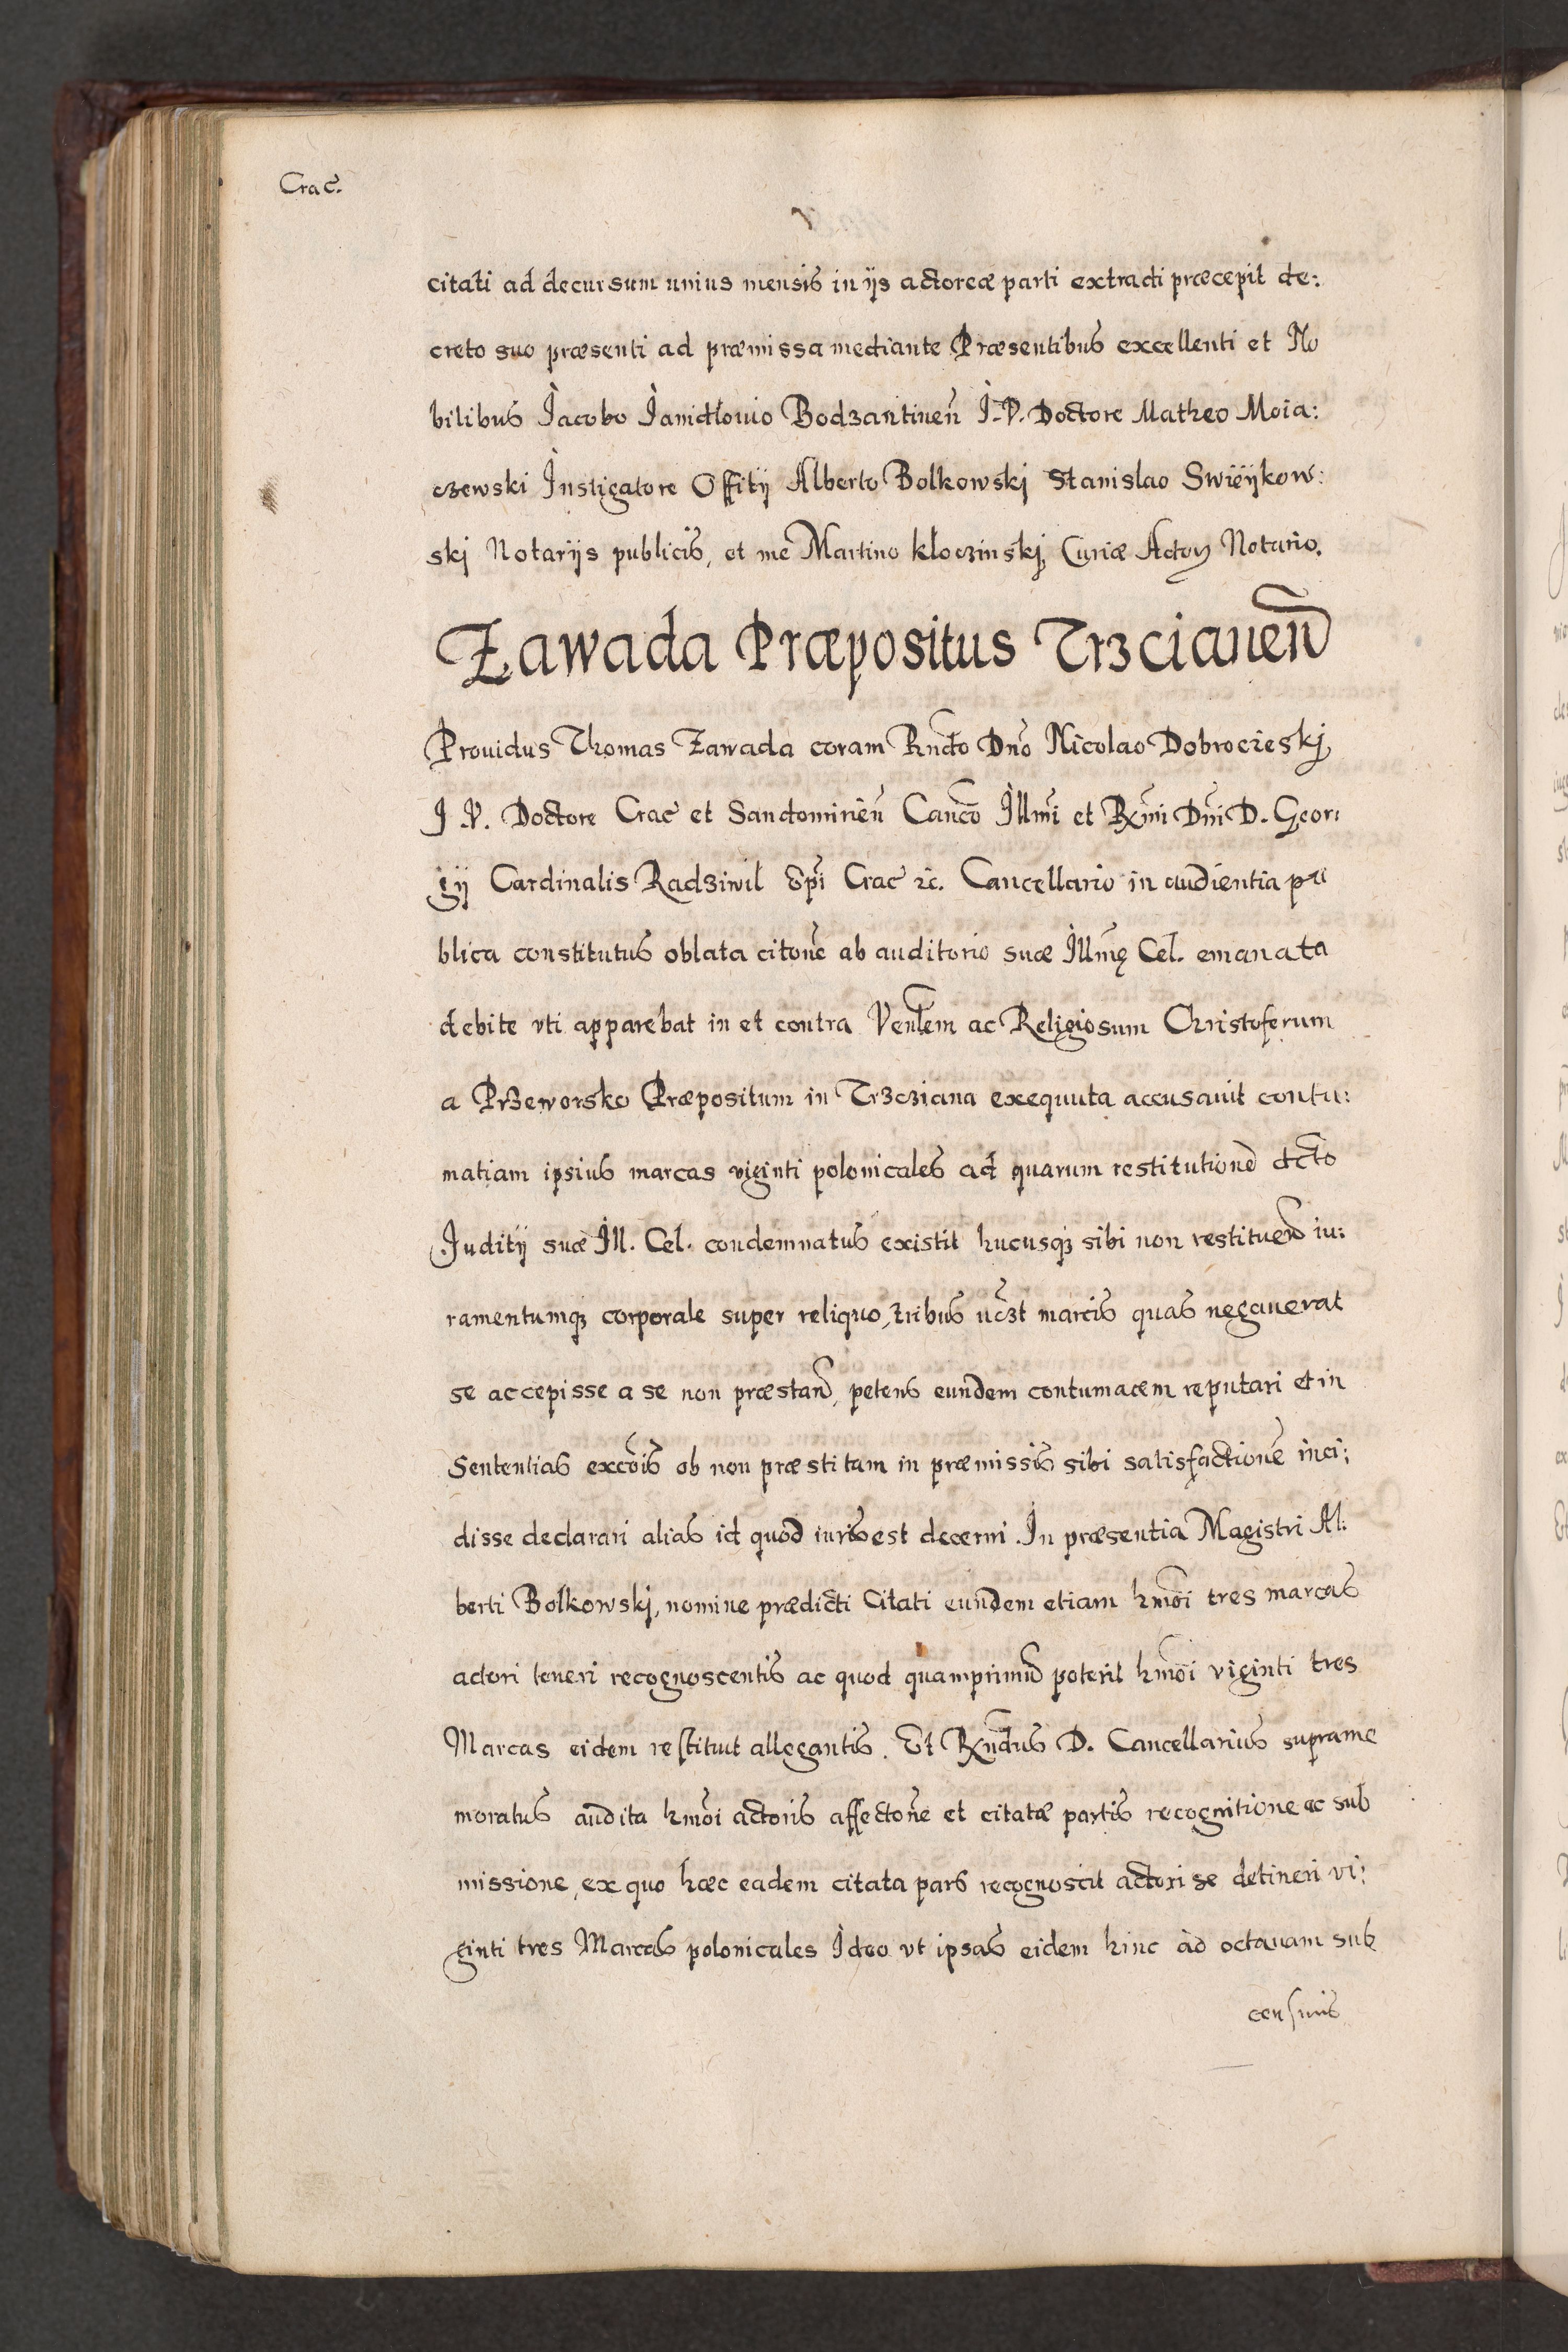 Crac̃.
citati ad decursum unius mensis in ijs actoreæ parti extradi præcepit de:
creto suo præsenti ad præmissa mediante Præsentibus excellenti et No
bilibus Jacobo Janidlouio Bodzantinen̄ J. V. Doctore Matheo Moia:
czewski Instigatore Offitij Alberto Bolkowskj Stanislao Swieÿkow:
skj Notarijs publicis, et me Martino kłoczinskj, Curiæ Actoꝝ Notario.
Zawada Præpositus Trzcianen̄
Prouidus Thomas Zawada coram Rndo Dn̄o Nicolao Dobrocieskj
J. V. Doctore Crac̃ et Sandomirien̄ Canco Illm̄i et Rx̄mi Dn̄i D. Geor:
gij Cardinalis Radziwil Epī Crac̃ ꝛc. Cancellario in audientia pu
blica constitutus oblata citon̄e ab auditorio suæ Illmę Cel. emanata
debite vti apparebat in et contra Venlem ac Religiosum Christoferum
a Przeworsko Præpositum in Trzcziana exequuta accusauit contu:
matiam ipsius marcas viginti polonicales ad quarum restitutionē dcto
Juditij suæ Ill. Cel. condemnatus existit hucusqꝫ sibi non restituen̄ iu:
ramentumqꝫ corporale super reliquo, tribus uczt marcis quas negauerat
se accepisse a se non præstan̄, petens eundem contumacem reputari et in
Sententias excōis ob non præstitam in præmissis sibi satisfactionē inci:
disse declarari alias id quod iuris est decerni. In præsentia Magistri Al:
berti Bolkowskj, nomine prædicti Citati eundem etiam hmōi tres marcas
actori teneri recognoscentis ac quod quamprimū poterit hmōi viginti tres
Marcas eidem restituit allegantis. Et Rxndus D. Cancellarius suprame
moratus audita hmōi actoris affecton̄e et citatæ partis recognitione ac sub
missione, ex quo hæc eadem citata pars recognoscit actori se detineri vi:
ginti tres Marcas polonicales Ideo vt ipsas eidem hinc ad octauam sub
censuris